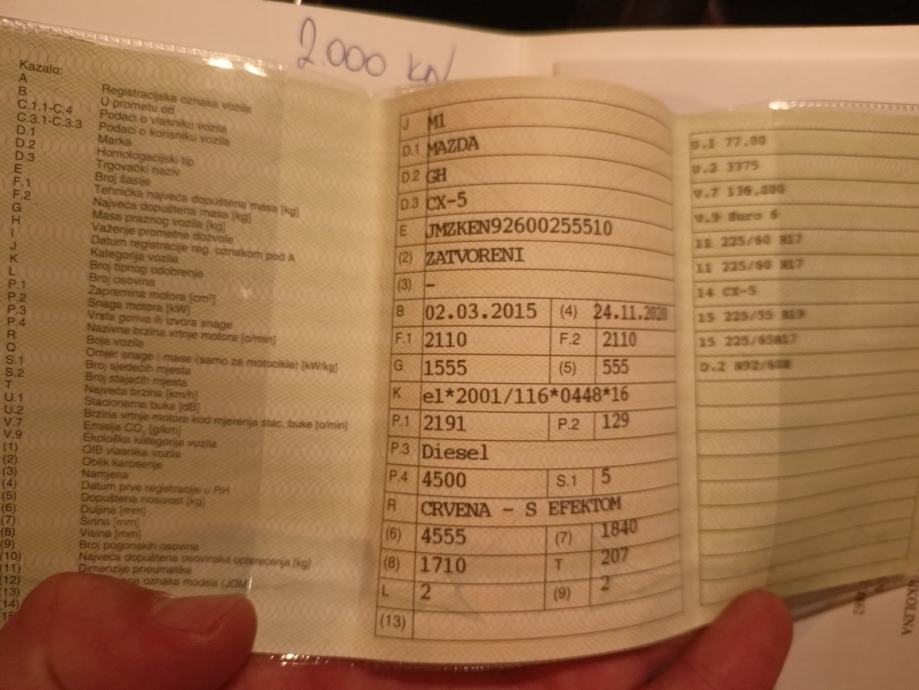 2.000 KN
Kazalo:
A Registracijska oznaka vozila
B U prometu od
C.1.1-C.4 Podaci o vlasniku vozila
C.3.1-C.3.3 Podaci o korisniku vozila
D.1 Marka
D.2 Homologacijski tip
D.3 Trgovački naziv
E Broj šasije
F.1 Tehnička najveća dopuštena masa [kg]
F.2 Najveća dopuštena masa [kg]
G Masa praznog vozila [kg]
H Važenje prometne dozvole
I Datum registracije reg. oznakom pod A
J Kategorija vozila
K Broj tipnog odobrenje
L Broj osovina
P.1 Zapremina motora [cm³]
P.2 Snaga motora [kW]
P.3 Vrsta goriva ili izvora snage
P.4 Nazivna brzina vrtnje motora [o/min]
R Boja vozila
Q Omjer snage i mase (samo za motocikle) [kW/kg]
S.1 Broj sjedećih mjesta
S.2 Broj stajaćih mjesta
T Najveća brzina [km/h]
U.1 Stacionarna buka [dB]
U.2 Brzina vrtnje motora kod mjerenja stac. buke [o/min]
V.7 Emisija CO₂ [g/km]
V.9 Ekološka kategorija vozila
(1) OIB vlasnika vozila
(2) Oblik karoserije
(3) Namjena
(4) Datum prve registracije u RH
(5) Dopuštena nosivost [kg]
(6) Duljina [mm]
(7) Širina [mm]
(8) Visina [mm]
(9) Broj pogonskih osovina
(10) Najveća dopuštena osovinska opterećenja [kg]
(11) Dimenzije pneumatika
(12) oznaka modela
(13)
(14)
J M1
D.1 MAZDA
D.2 GH
D.3 CX-5
E JMZKEN92600255510
(2) ZATVORENI
(3) -
B 02.03.2015 (4) 24.11.2020
F.1 2110 F.2 2110
G 1555 (5) 555
K e1*2001/116*0448*16
P.1 2191 P.2 129
P.3 Diesel
P.4 4500 S.1 5
R CRVENA - S EFEKTOM
(6) 4555 (7) 1840
(8) 1710 T 207
L 2 (9) 2
(13)
U.1 77,00
U.2 3375
V.7 136,000
V.9 Euro 6
11 225/60 R17
11 225/60 R17
14 CX-5
15 225/55 R19
15 225/65R17
D.2
KOLINA